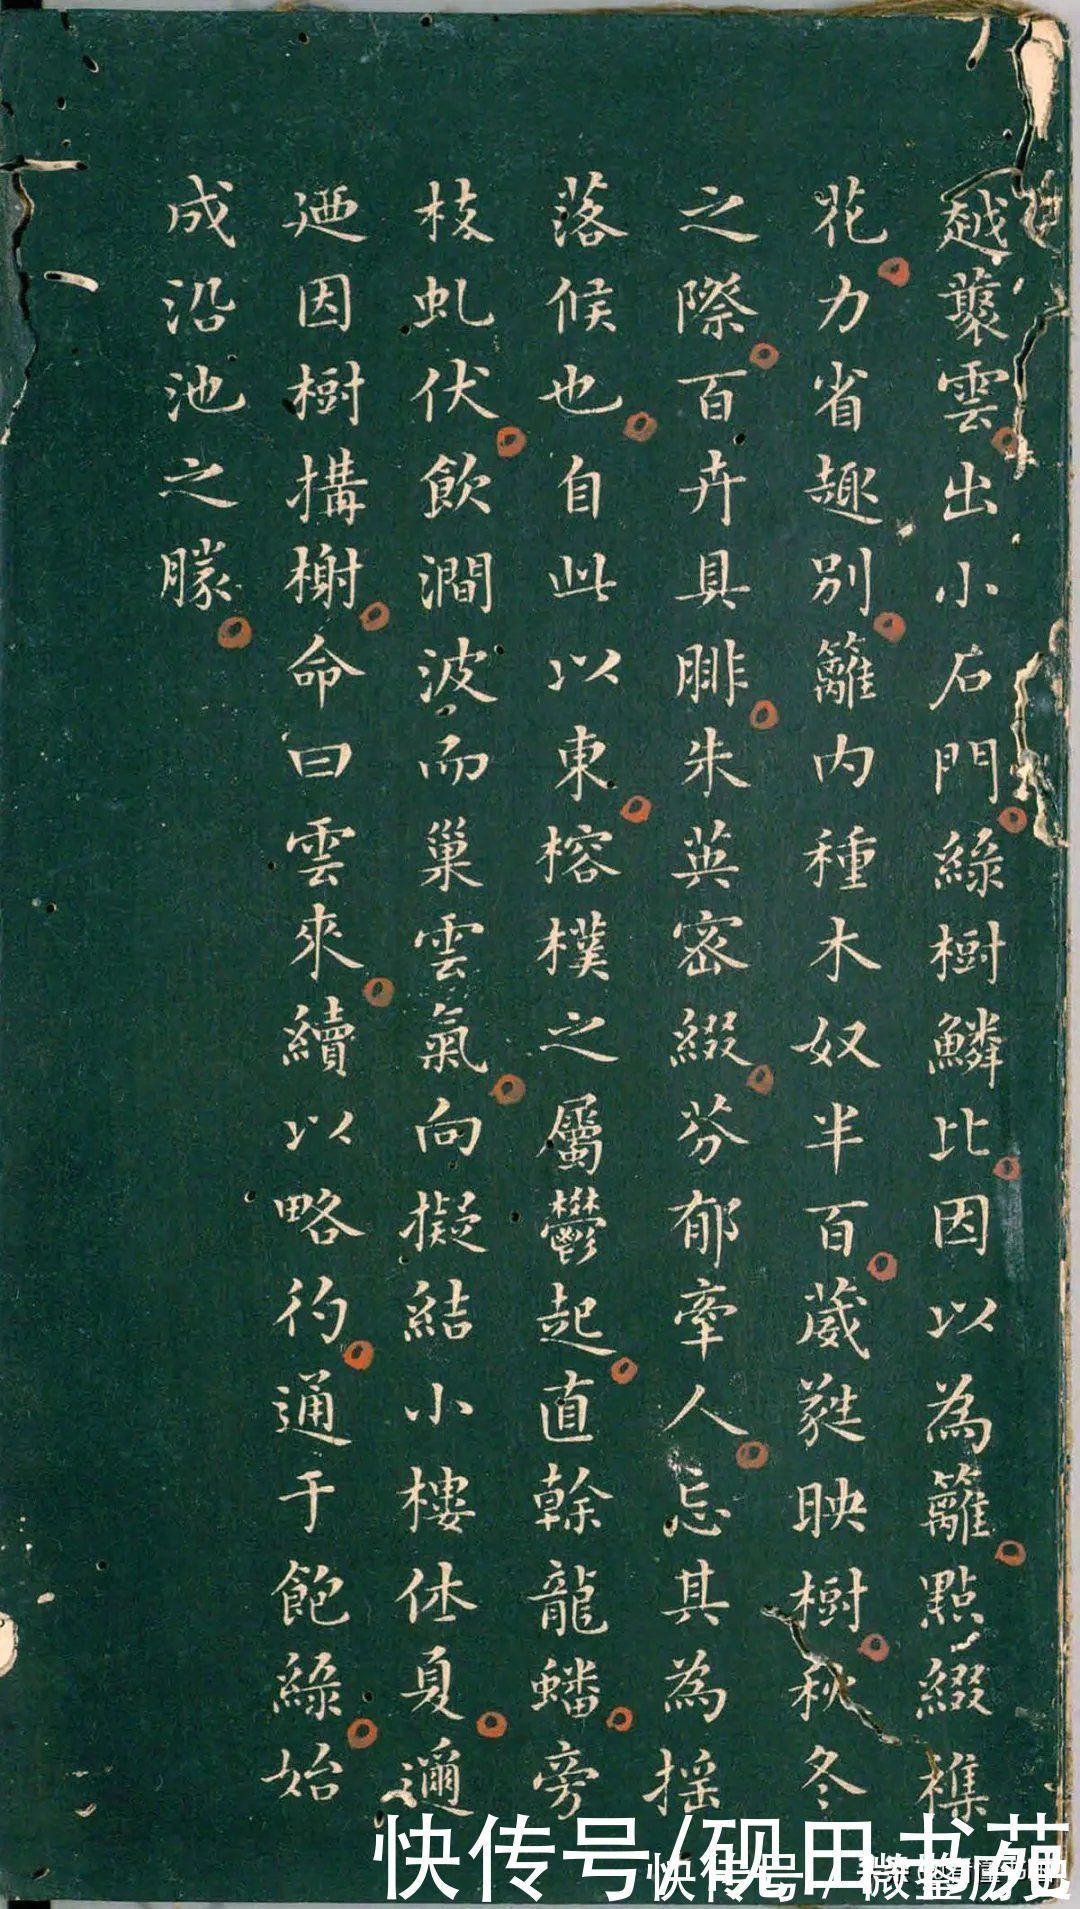 越藂雲出小石門綠樹鱗比因以為籬點綴襍
花力省趣別籬內種木奴半百葳蕤映樹秋冬
之際百卉具腓朱英密綴芬郁牽人忘其為搖
落候也自此以東榕樸之屬鬱起直榦龍蟠旁
枝虬伏飲澗波而巢雲氣向擬結小樓休夏邇
迺因樹搆榭命曰雲來續以略彴通于飽綠始
成沿池之勝
快传号/砚田书苑